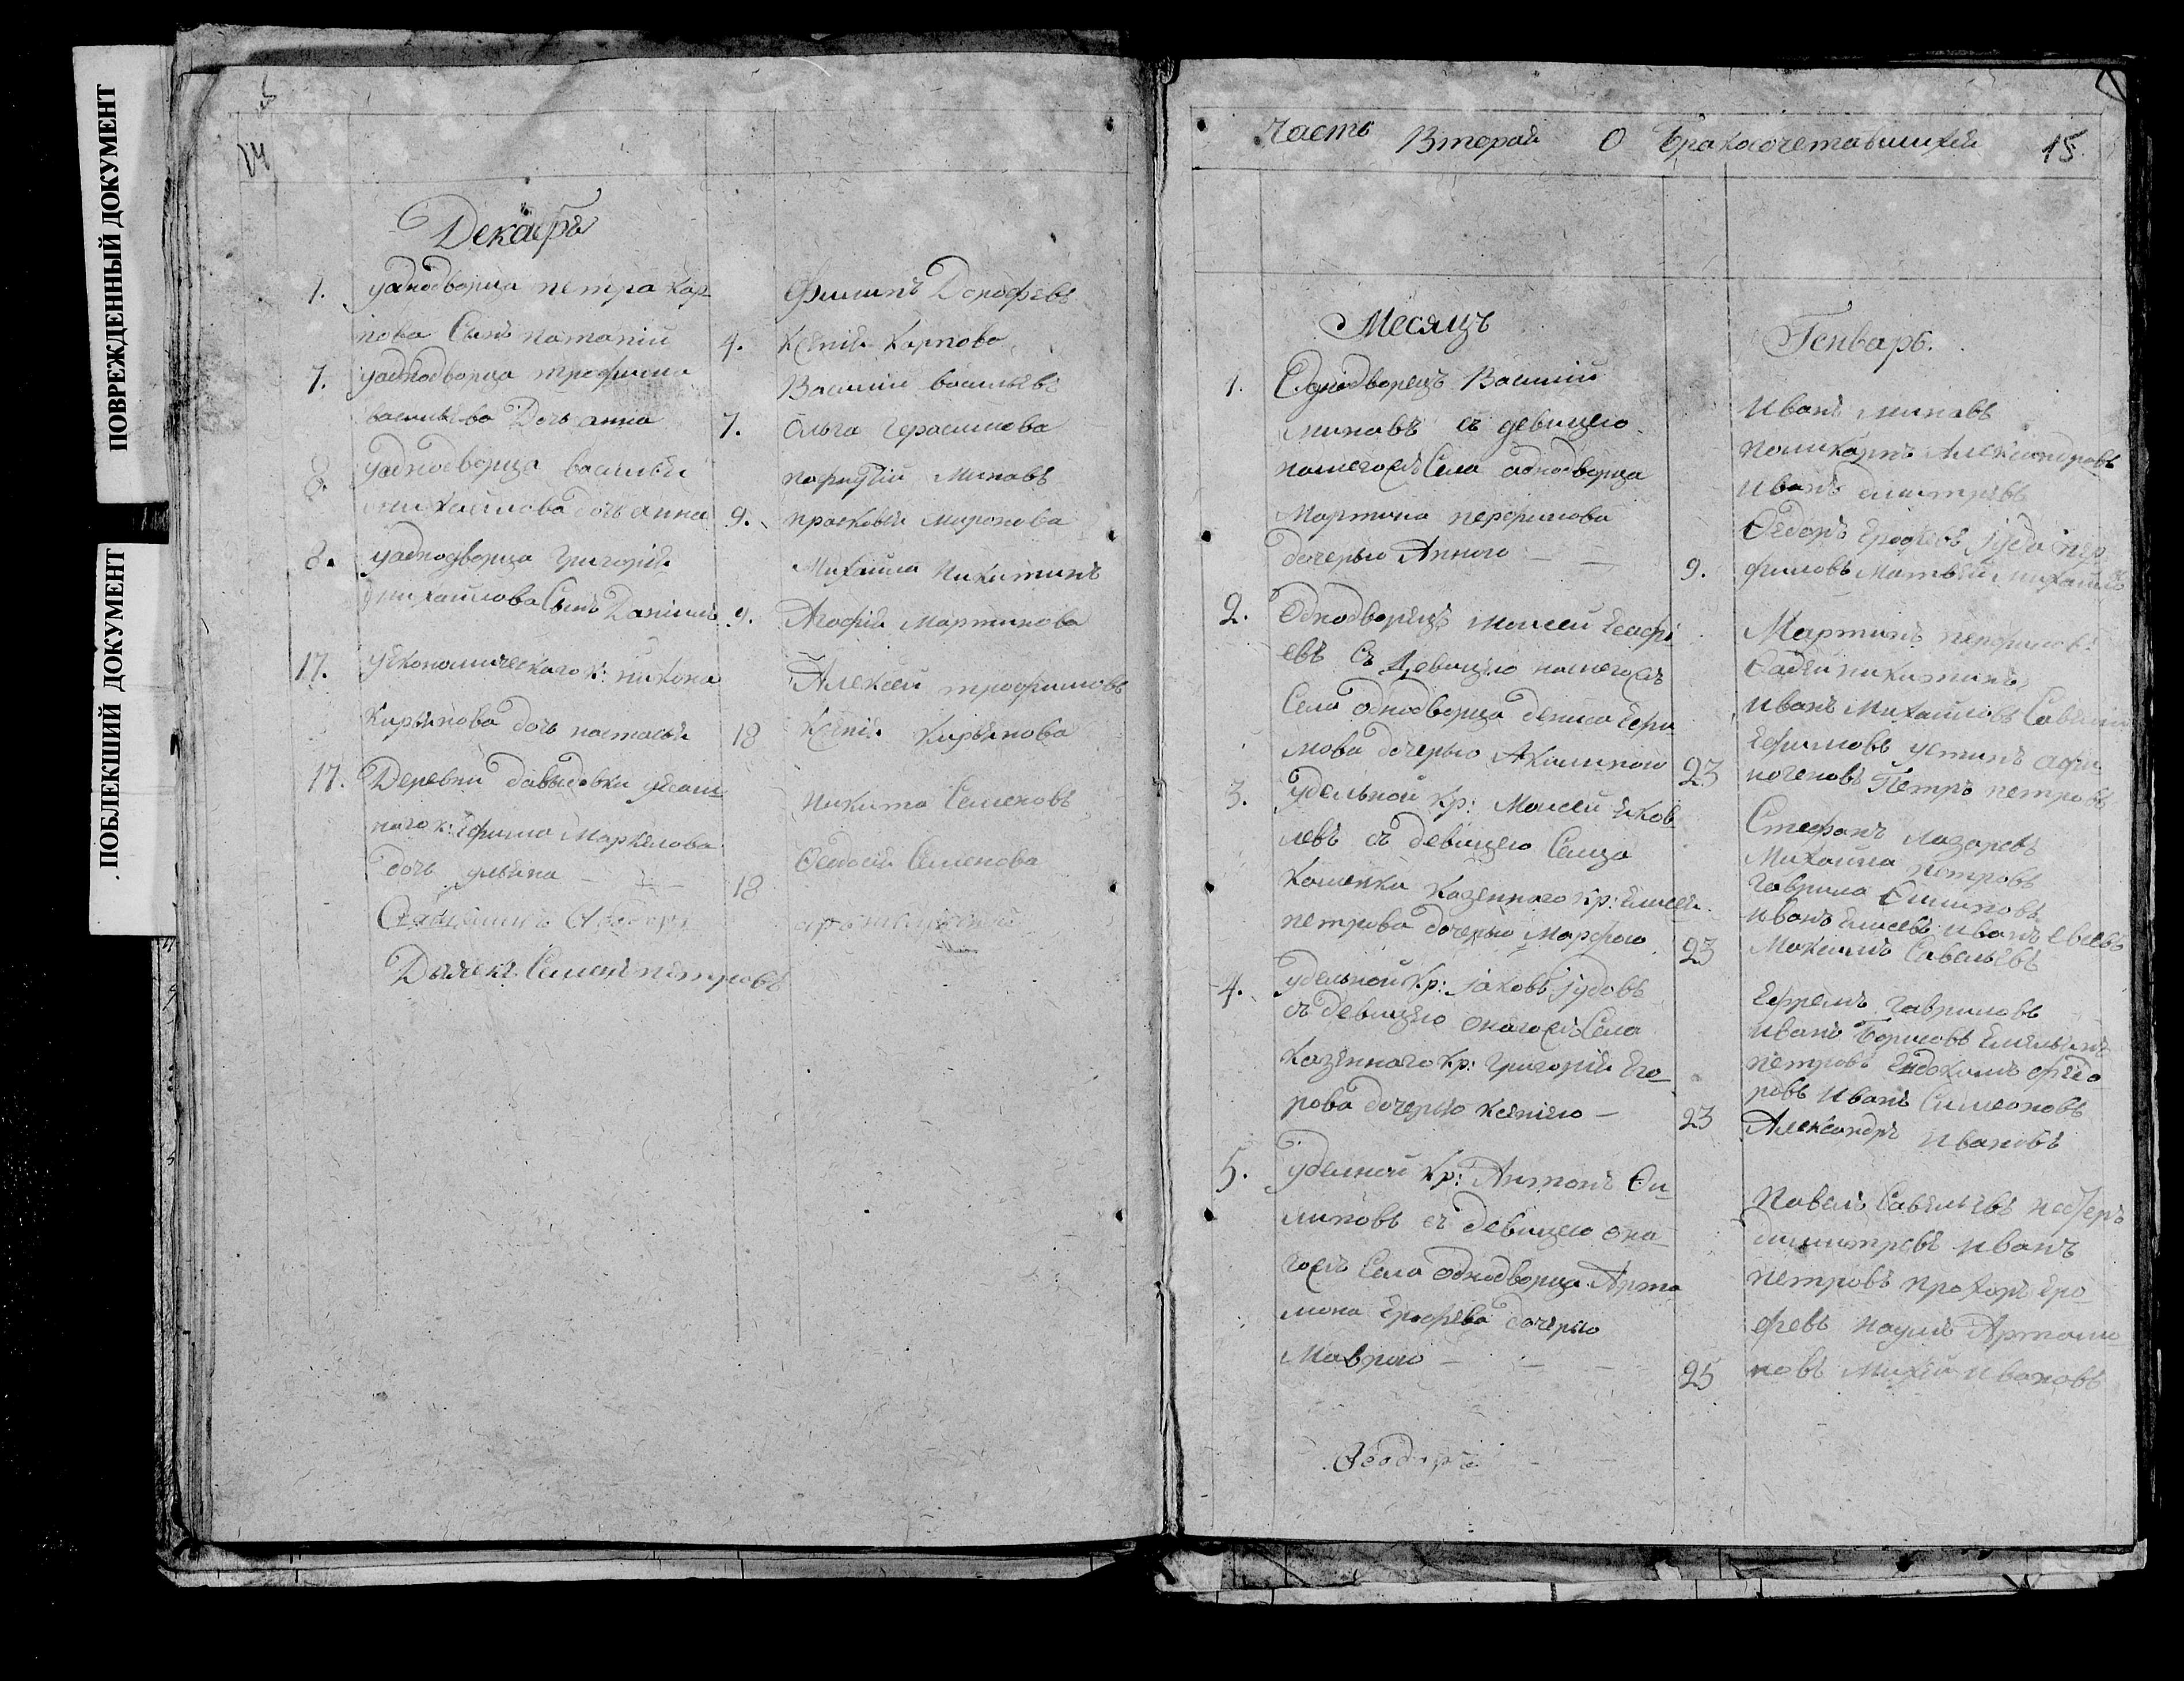 ПОВРЕЖДЕННЫЙ ДОКУМЕНТ
ПОБЛЕКШИЙ ДОКУМЕНТ
14
Декабрь
1. уаднодворца петра кар
пова Сынъ патапiй 4.
Филипъ Дорофѣевъ
Ксѣнiя Карпова
7. уаднодворца трофима
васильева Дочь анна 7.
Василiй васильевъ
Ольга Герасимова
8. уаднодворца василья
михайлова дочь анна 9.
пафнутiй Минавъ
прасковья миронова
8. уаднодворца григорiя
михайлова Сынъ Данiилъ 9.
Михаила Никитинъ
Агафiя Мартинова
17. уекономическаго к: никона
Кирьянова дочь настасья 18
Алексѣй трофимовъ
Ксѣнiя Кирьянова
17. Деревни давыдовки
наго к: Ефима Маркелова
дочь ульяна 18
Никита Семеновъ
Ѳеодосiя Семенова
Дьячекъ Семенъ петровъ
Часть Вторая О Бракосочетавшихся 15.
Месяцъ Генварь.
1. Однодворецъ Василiй
минавъ съ девицею
нашегожъ Села аднодворца
Мартина перфилова
дочерью Анною 9.
Иванъ минавъ
поликарпъ Александровъ
Иванъ дмитревъ
Ѳедоръ Ерофѣевъ Iуда пер
филовъ Матвѣй михайловъ
2. Однодворецъ Моисей
евъ Съ Девицею нашегожъ
Села однодворца дениса Ефи
мова дочерью Акилиною 23
Мартинъ перфиловъ
Фадѣй никитинъ
Иванъ Михайловъ Савѣлiй
Ефимовъ устинъ афи
ногеновъ Петръ петровъ
3. Удельной кр: Моисей Яков
левъ съ девицею Сельца
Каменки Казенного кр: Елисея
петрова дочерью Марфою 23
Стефанъ лазаревъ
Михайла петровъ
Гаврила Филиповъ
Иванъ Елисевъ Иванъ Евсевъ
Максимъ Савельевъ
4. удельной кр: Iаковъ Iудовъ
съ девицею онагожъ Села
Казенного кр: григорiя Его
рова дочерью ксенiею 23
Ефремъ Гавриловъ
Иванъ Борисовъ Емельянъ
петровъ Евдокимъ федо
ровъ Иванъ Симеоновъ
Александръ Ивановъ
5. уделной кр: Антонъ Фи
липовъ съ девицею она
гожъ Села однодворца Арта
мона Ерофѣева дочерью
Маврою 25
Павелъ Савельевъ
димитревъ Иванъ
петровъ прохоръ Еро
фѣевъ Наумъ Артамо
новъ Михѣй Ивановъ
Ѳеодоръ